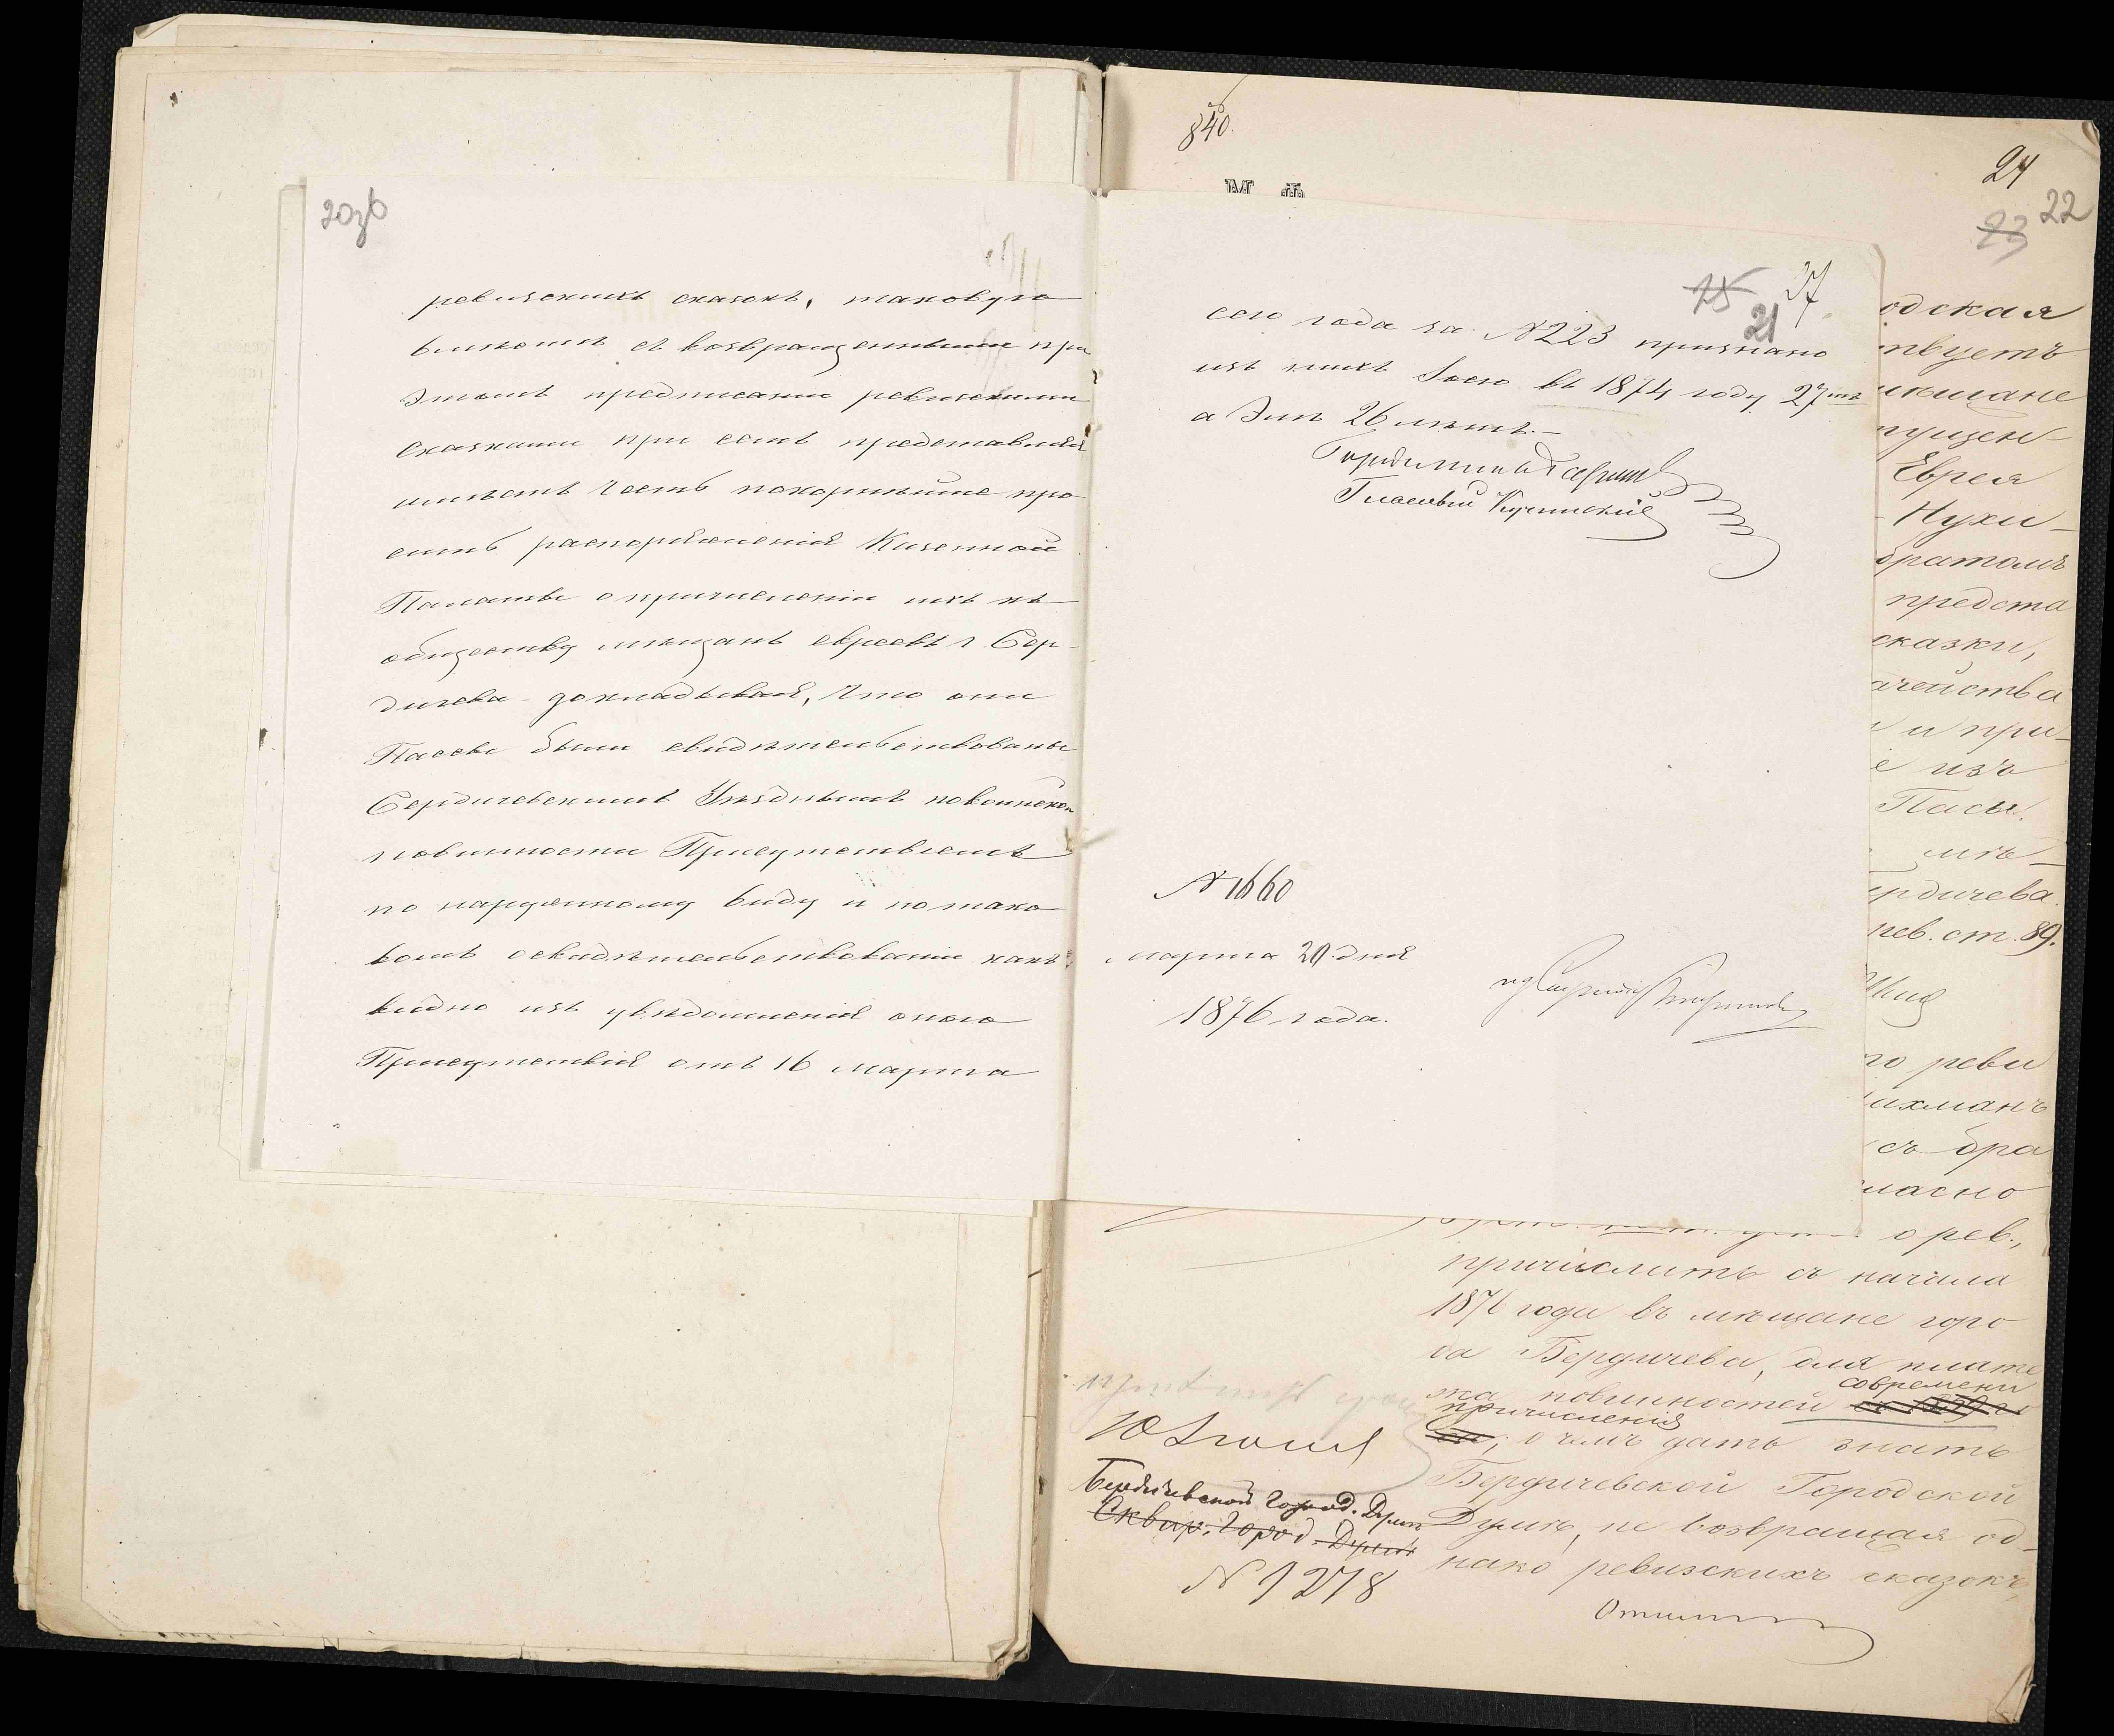 20зв
ревизскихъ сказокъ, таковую
вмѣстѣ съ возвращенными при
этомъ предписаніи ревизскими
сказками при семъ представляя
имѣетъ честь покорнѣйше про
сить распоряженія Казенной
Палаты о причисленіи ихъ къ
обществу мѣщанъ евреевъ г. Бер-
дичева - докладывая, что они
Пасевы были свидѣтельствованы
Бердичевскимъ Уѣзднымъ по воинской
повинности Присутствіемъ
по наружному виду и по тако
вомъ освидѣтельствованіи какъ
видно изъ увѣдомленія оного
Присутствія отъ 16 марта
27
25
21
сего года за №223 признано
изъ нихъ въ 1874 году 27 лѣтъ
а Эль 26 лѣтъ.-
Гласный
№ 1660
марта 29 дня
1876 года.
840.
М. Ф.
24
23 22
одская
твуетъ
ѣщане
пущен-
Еврея
Нухи-
братомъ
предста
сказки,
ачейства
и при-
е изъ
Пасы.
мѣ-
ердичева
рев. ст. 89.
го реви
ахманъ
съ бра
гласно
о рев.,
причислить съ начала
1876 года въ мѣщане горо
да Бердичева, для плате
жа повинностей со времени
причисленія, о чемъ дать знать
Бердичевской Городской
Думѣ, не возвращая од-
нако ревизскихъ сказокъ,
10 Іюня
Бердичевской Город. Думѣ
Сквир. Город. Думѣ
№ 1278